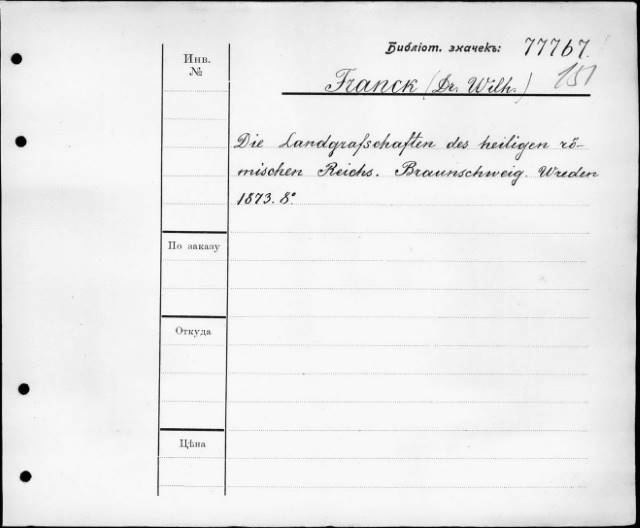 Библіот. значекъ: 77767.
151
Инв.
№
Franck (Dr. Wilh.)
Die Landgrafschaften des heiligen rö-
mischen Reichs. Braunschweig. Wreden
1873. 8°
По заказу
Откуда
Цѣна